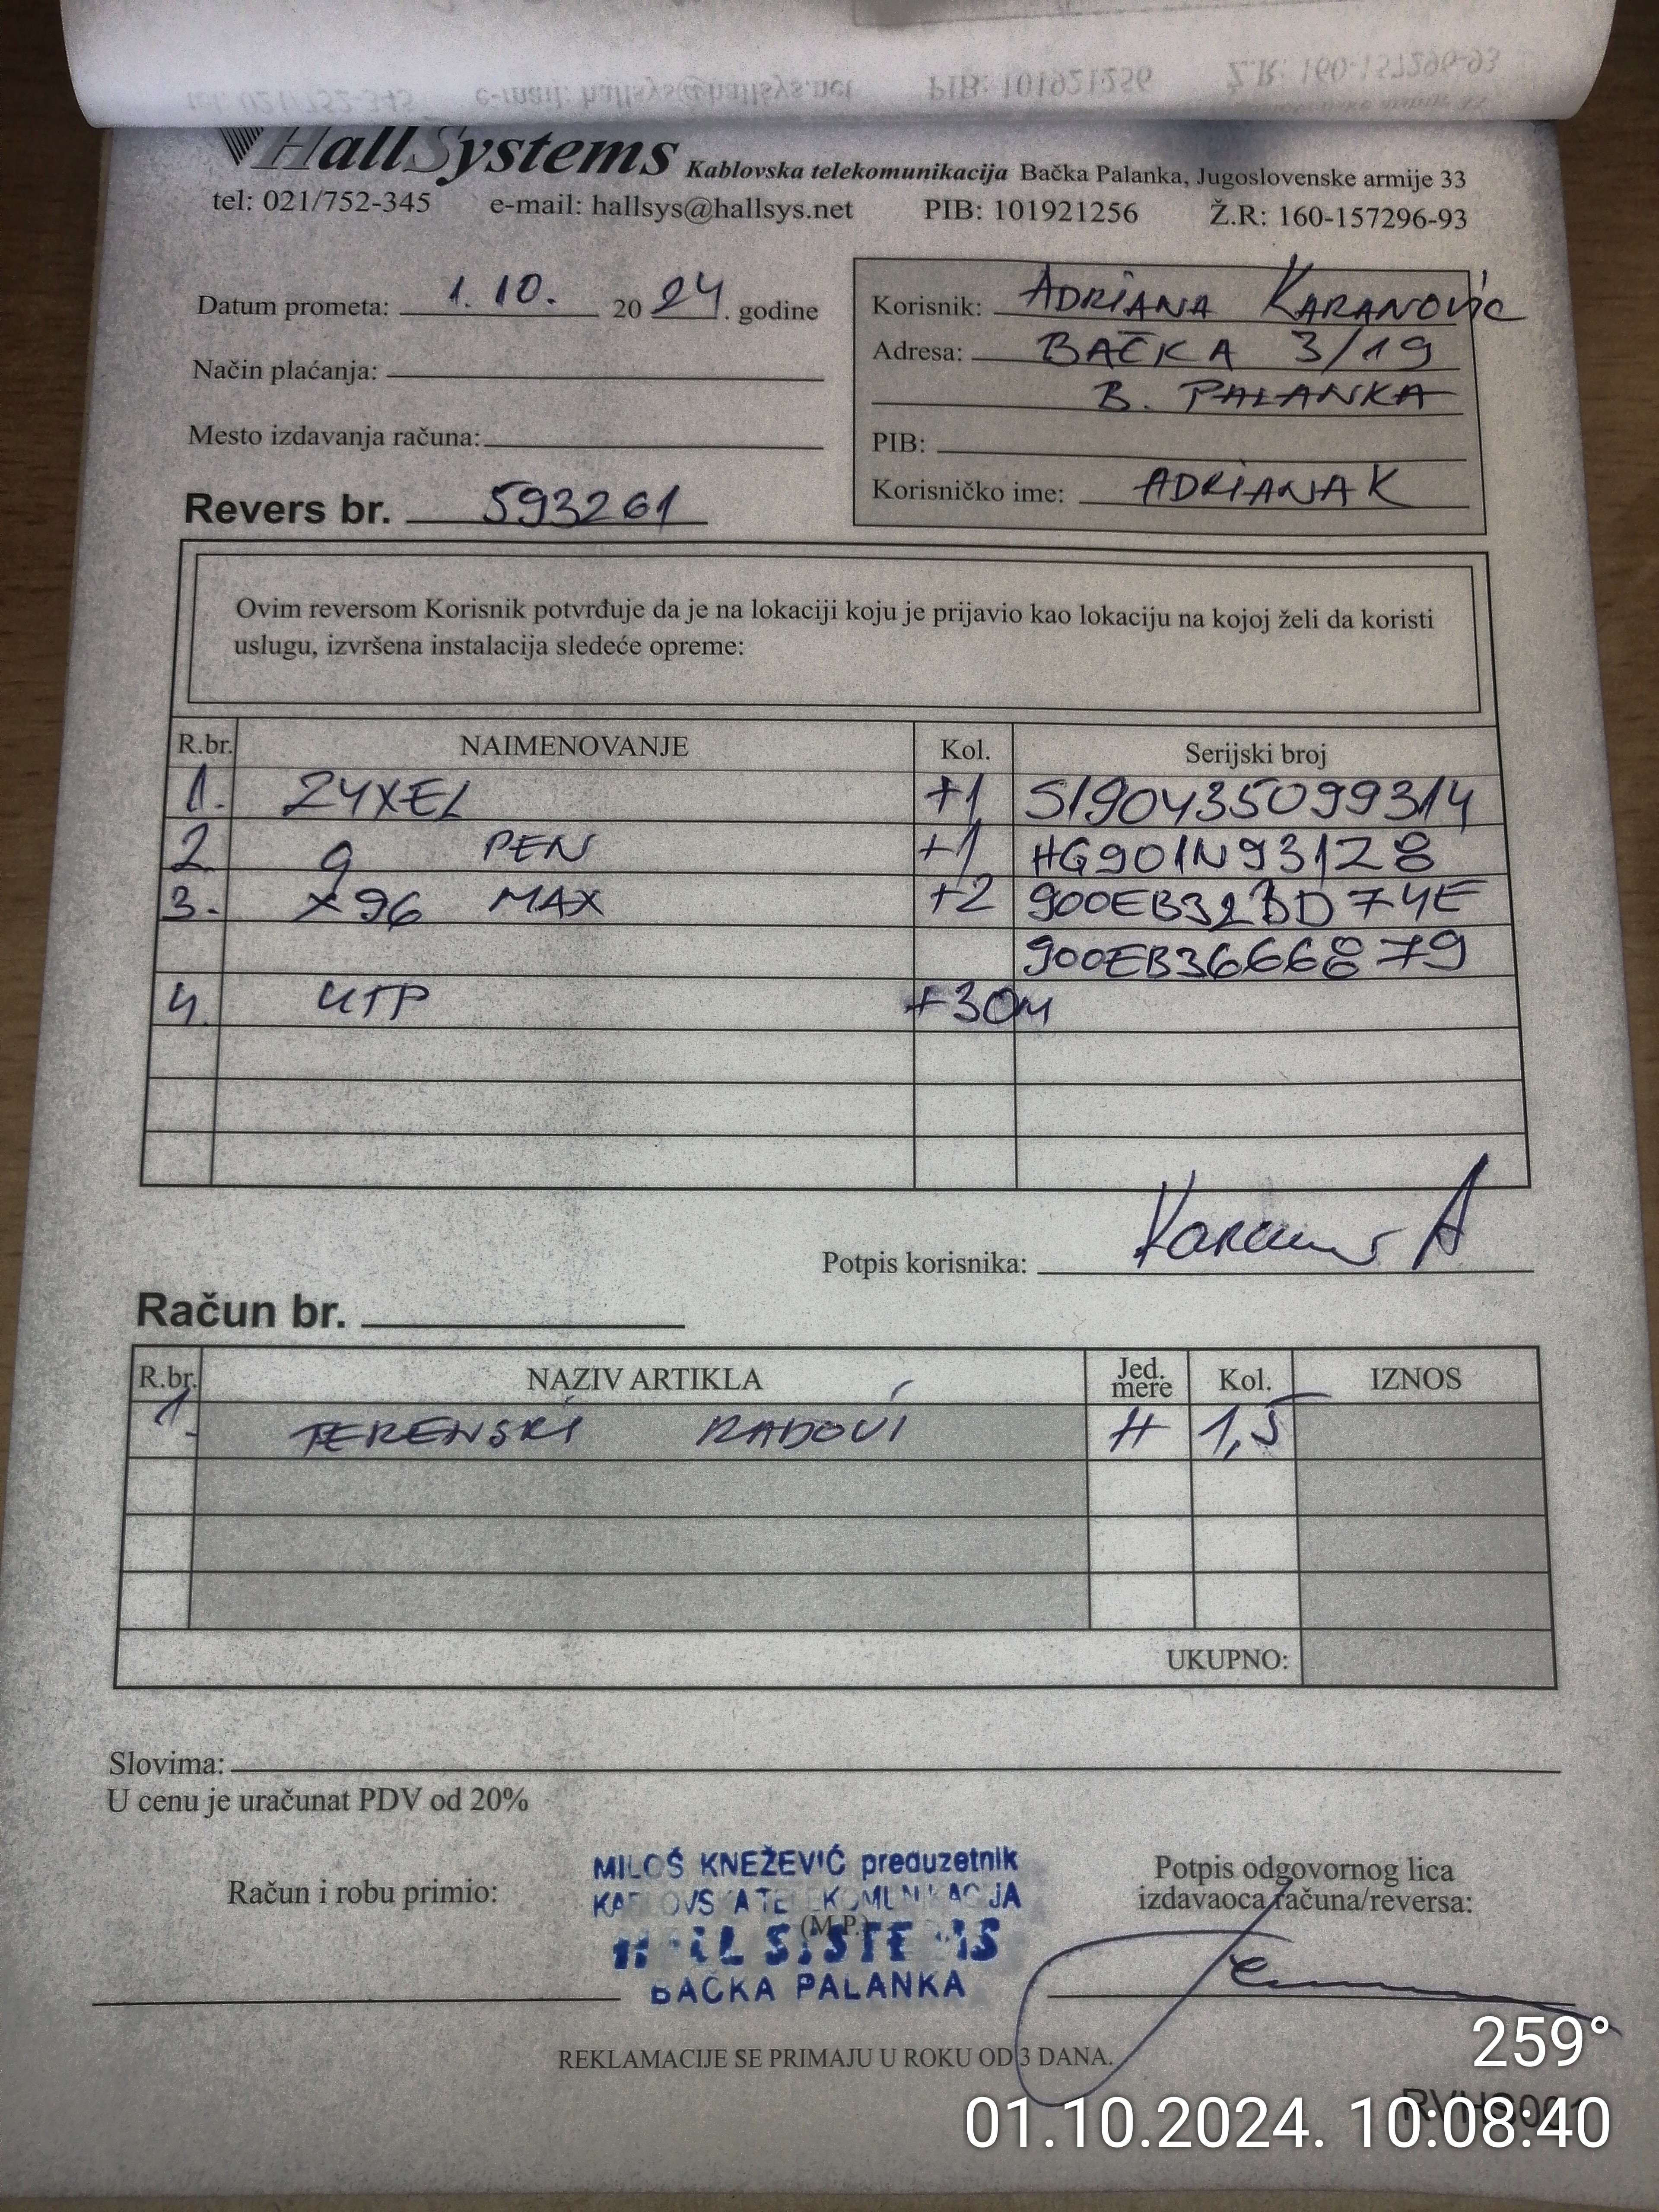 HallSystems Kablovska telekomunikacija Bačka Palanka, Jugoslovenske armije 33
tel: 021/752-345 e-mail: hallsys@hallsys.net PIB: 101921256 Ž.R: 160-157296-93
Datum prometa: 1. 10. 20 24. godine
Način plaćanja:
Mesto izdavanja računa:
Revers br. 593261
Korisnik: ADRIANA KARANOVIĆ
Adresa: BAČKA 3/19
B. PALANKA
PIB:
Korisničko ime: ADRIANAK
Ovim reversom Korisnik potvrđuje da je na lokaciji koju je prijavio kao lokaciju na kojoj želi da koristi
uslugu, izvršena instalacija sledeće opreme:
R.br. NAIMENOVANJE Kol. Serijski broj
1. ZYXEL +1 S190435099314
2 9 PEN +1 HG901N93128
3. X96 MAX +2 900EB32BD74E
900EB3666879
4. UTP +30M
Potpis korisnika:
Račun br.
R.br. NAZIV ARTIKLA Jed. mere Kol. IZNOS
1. TERENSKI RADOVI H 1,5
UKUPNO:
Slovima:
U cenu je uračunat PDV od 20%
Račun i robu primio:
MILOŠ KNEŽEVIĆ preduzetnik
(M.P.)
BAČKA PALANKA
Potpis odgovornog lica
izdavaoca računa/reversa:
REKLAMACIJE SE PRIMAJU U ROKU OD 3 DANA.
259°
01.10.2024. 10:08:40